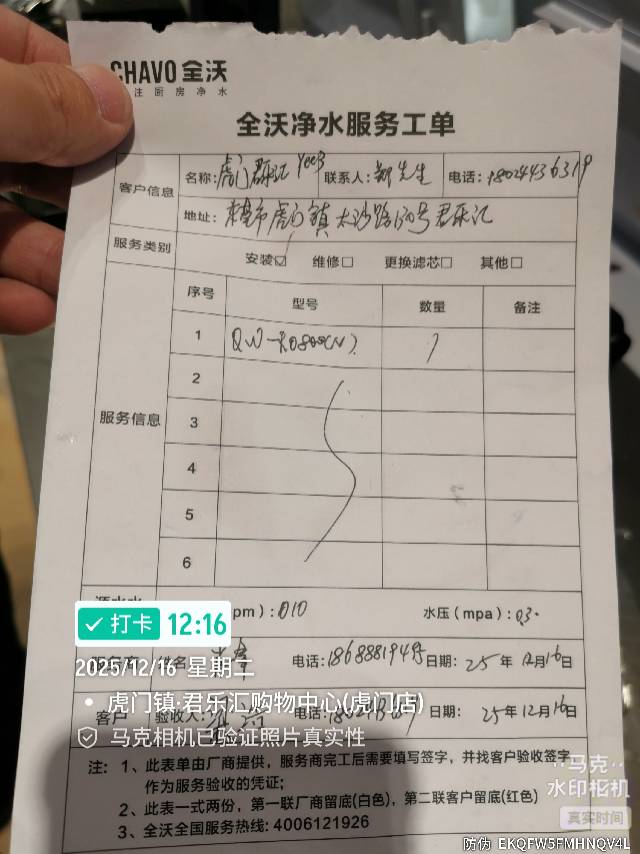 CHAVO 全沃
注厨房净水
全沃净水服务工单
客户信息 名称: 虎门 联系人: 先生 电话: 18024436319
地址: 东莞市虎门镇太沙路130号君乐汇
服务类别 安装☑ 维修□ 更换滤芯□ 其他□
服务信息 序号 型号 数量 备注
1 1
2
3
4
5
6
pm): 010 水压(mpa): 0.3
打卡 12:16
服务商 姓名 电话: 日期: 25年12月16日
2025/12/16 星期二
虎门镇·君乐汇购物中心(虎门店)
客户 验收人: 电话: 日期: 25年12月16日
马克相机已验证照片真实性
注: 1、此表单由厂商提供，服务商完工后需要填写签字，并找客户验收签字
作为服务验收的凭证;
2、此表一式两份，第一联厂商留底(白色)，第二联客户留底(红色)
3、全沃全国服务热线: 4006121926
马克
水印相机
真实时间
防伪 EKQFW5FMHNQV4L